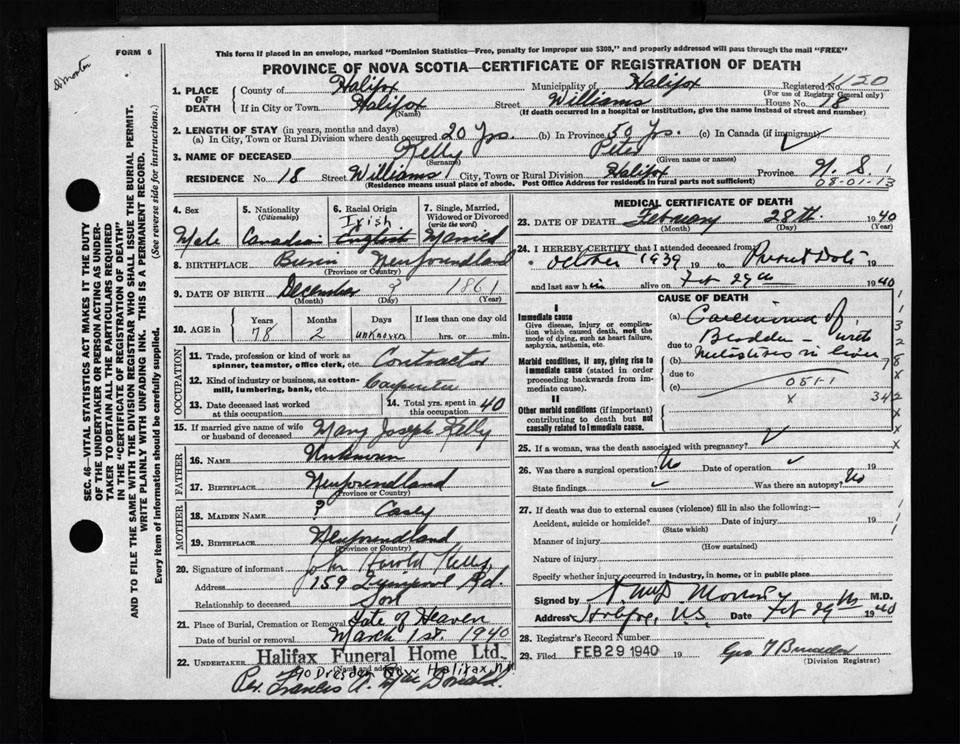 FORM 6
This form if placed in an envelope, marked "Dominion Statistics—Free, penalty for improper use $300," and properly addressed will pass through the mail "FREE"
PROVINCE OF NOVA SCOTIA—CERTIFICATE OF REGISTRATION OF DEATH
SEC. 46—VITAL STATISTICS ACT MAKES IT THE DUTY
OF THE UNDERTAKER OR PERSON ACTING AS UNDER-
TAKER TO OBTAIN ALL THE PARTICULARS REQUIRED
IN THE "CERTIFICATE OF REGISTRATION OF DEATH"
AND TO FILE THE SAME WITH THE DIVISION REGISTRAR WHO SHALL ISSUE THE BURIAL PERMIT.
WRITE PLAINLY WITH UNFADING INK. THIS IS A PERMANENT RECORD.
Every item of information should be carefully supplied. (See reverse side for instructions.)
1. PLACE OF DEATH County of Halifax Municipality of Halifax Registered No. 1120
(For use of Registrar General only)
If in City or Town Halifax Street Williams House No. 18
(Name) (If death occurred in a hospital or institution, give the name instead of street and number)
2. LENGTH OF STAY (in years, months and days)
(a) In City, Town or Rural Division where death occurred 20 Yrs. (b) In Province 50 Yrs. (c) In Canada (if immigrant) ✓
3. NAME OF DECEASED Kelly Peter
(Surname) (Given name or names)
RESIDENCE No. 18 Street Williams City, Town or Rural Division Halifax Province N. S.
(Residence means usual place of abode. Post Office Address for residents in rural parts not sufficient) 08-01-13
4. Sex 5. Nationality (Citizenship) 6. Racial Origin 7. Single, Married, Widowed or Divorced (write the word)
Irish
Male Canadian English Married
8. BIRTHPLACE Burin Newfoundland
(Province or Country)
9. DATE OF BIRTH December ? 1861
(Month) (Day) (Year)
10. AGE in Years Months Days If less than one day old
78 2 unknown hrs. or min.
OCCUPATION
11. Trade, profession or kind of work as spinner, teamster, office clerk, etc. Contractor
12. Kind of industry or business, as cotton-mill, lumbering, bank, etc. Carpenter
13. Date deceased last worked at this occupation 14. Total yrs. spent in this occupation 40
15. If married give name of wife or husband of deceased Mary Joseph Kelly
FATHER
16. NAME Unknown
17. BIRTHPLACE Newfoundland
(Province or Country)
MOTHER
18. MAIDEN NAME ? Casey
19. BIRTHPLACE Newfoundland
(Province or Country)
20. Signature of informant John Harold Kelly
Address 159 Rd
Relationship to deceased Son
21. Place of Burial, Cremation or Removal Gate of Heaven
Date of burial or removal March 1st. 1940
22. UNDERTAKER Halifax Funeral Home Ltd.
(Name and address)
90 Dresden Row Halifax, N.S.
Per. Francis A. MacDonald.
MEDICAL CERTIFICATE OF DEATH
23. DATE OF DEATH February 28th 1940
(Month) (Day) (Year)
24. I HEREBY CERTIFY that I attended deceased from
October 1939 19 to Present Date 19
and last saw him alive on Feb 29th 1940
CAUSE OF DEATH
I
Immediate cause
Give disease, injury or complication which caused death, not the mode of dying, such as heart failure, asphyxia, asthenia, etc.
(a) Carcinoma of
due to Bladder — with
(b) Metastases in liver
Morbid conditions, if any, giving rise to immediate cause (stated in order proceeding backwards from immediate cause).
due to
(c) 051-1
x 34
II
Other morbid conditions (if important) contributing to death but not causally related to immediate cause.
25. If a woman, was the death associated with pregnancy? ✓
26. Was there a surgical operation? No Date of operation ✓ 19
State findings ✓ Was there an autopsy? No
27. If death was due to external causes (violence) fill in also the following:—
Accident, suicide or homicide? Date of injury 19
(State which)
Manner of injury
(How sustained)
Nature of injury
Specify whether injury occurred in industry, in home, or in public place
Signed by M.D.
Address Halifax, N.S. Date Feb 29th 1940
28. Registrar's Record Number
29. Filed FEB 29 1940 19
(Division Registrar)